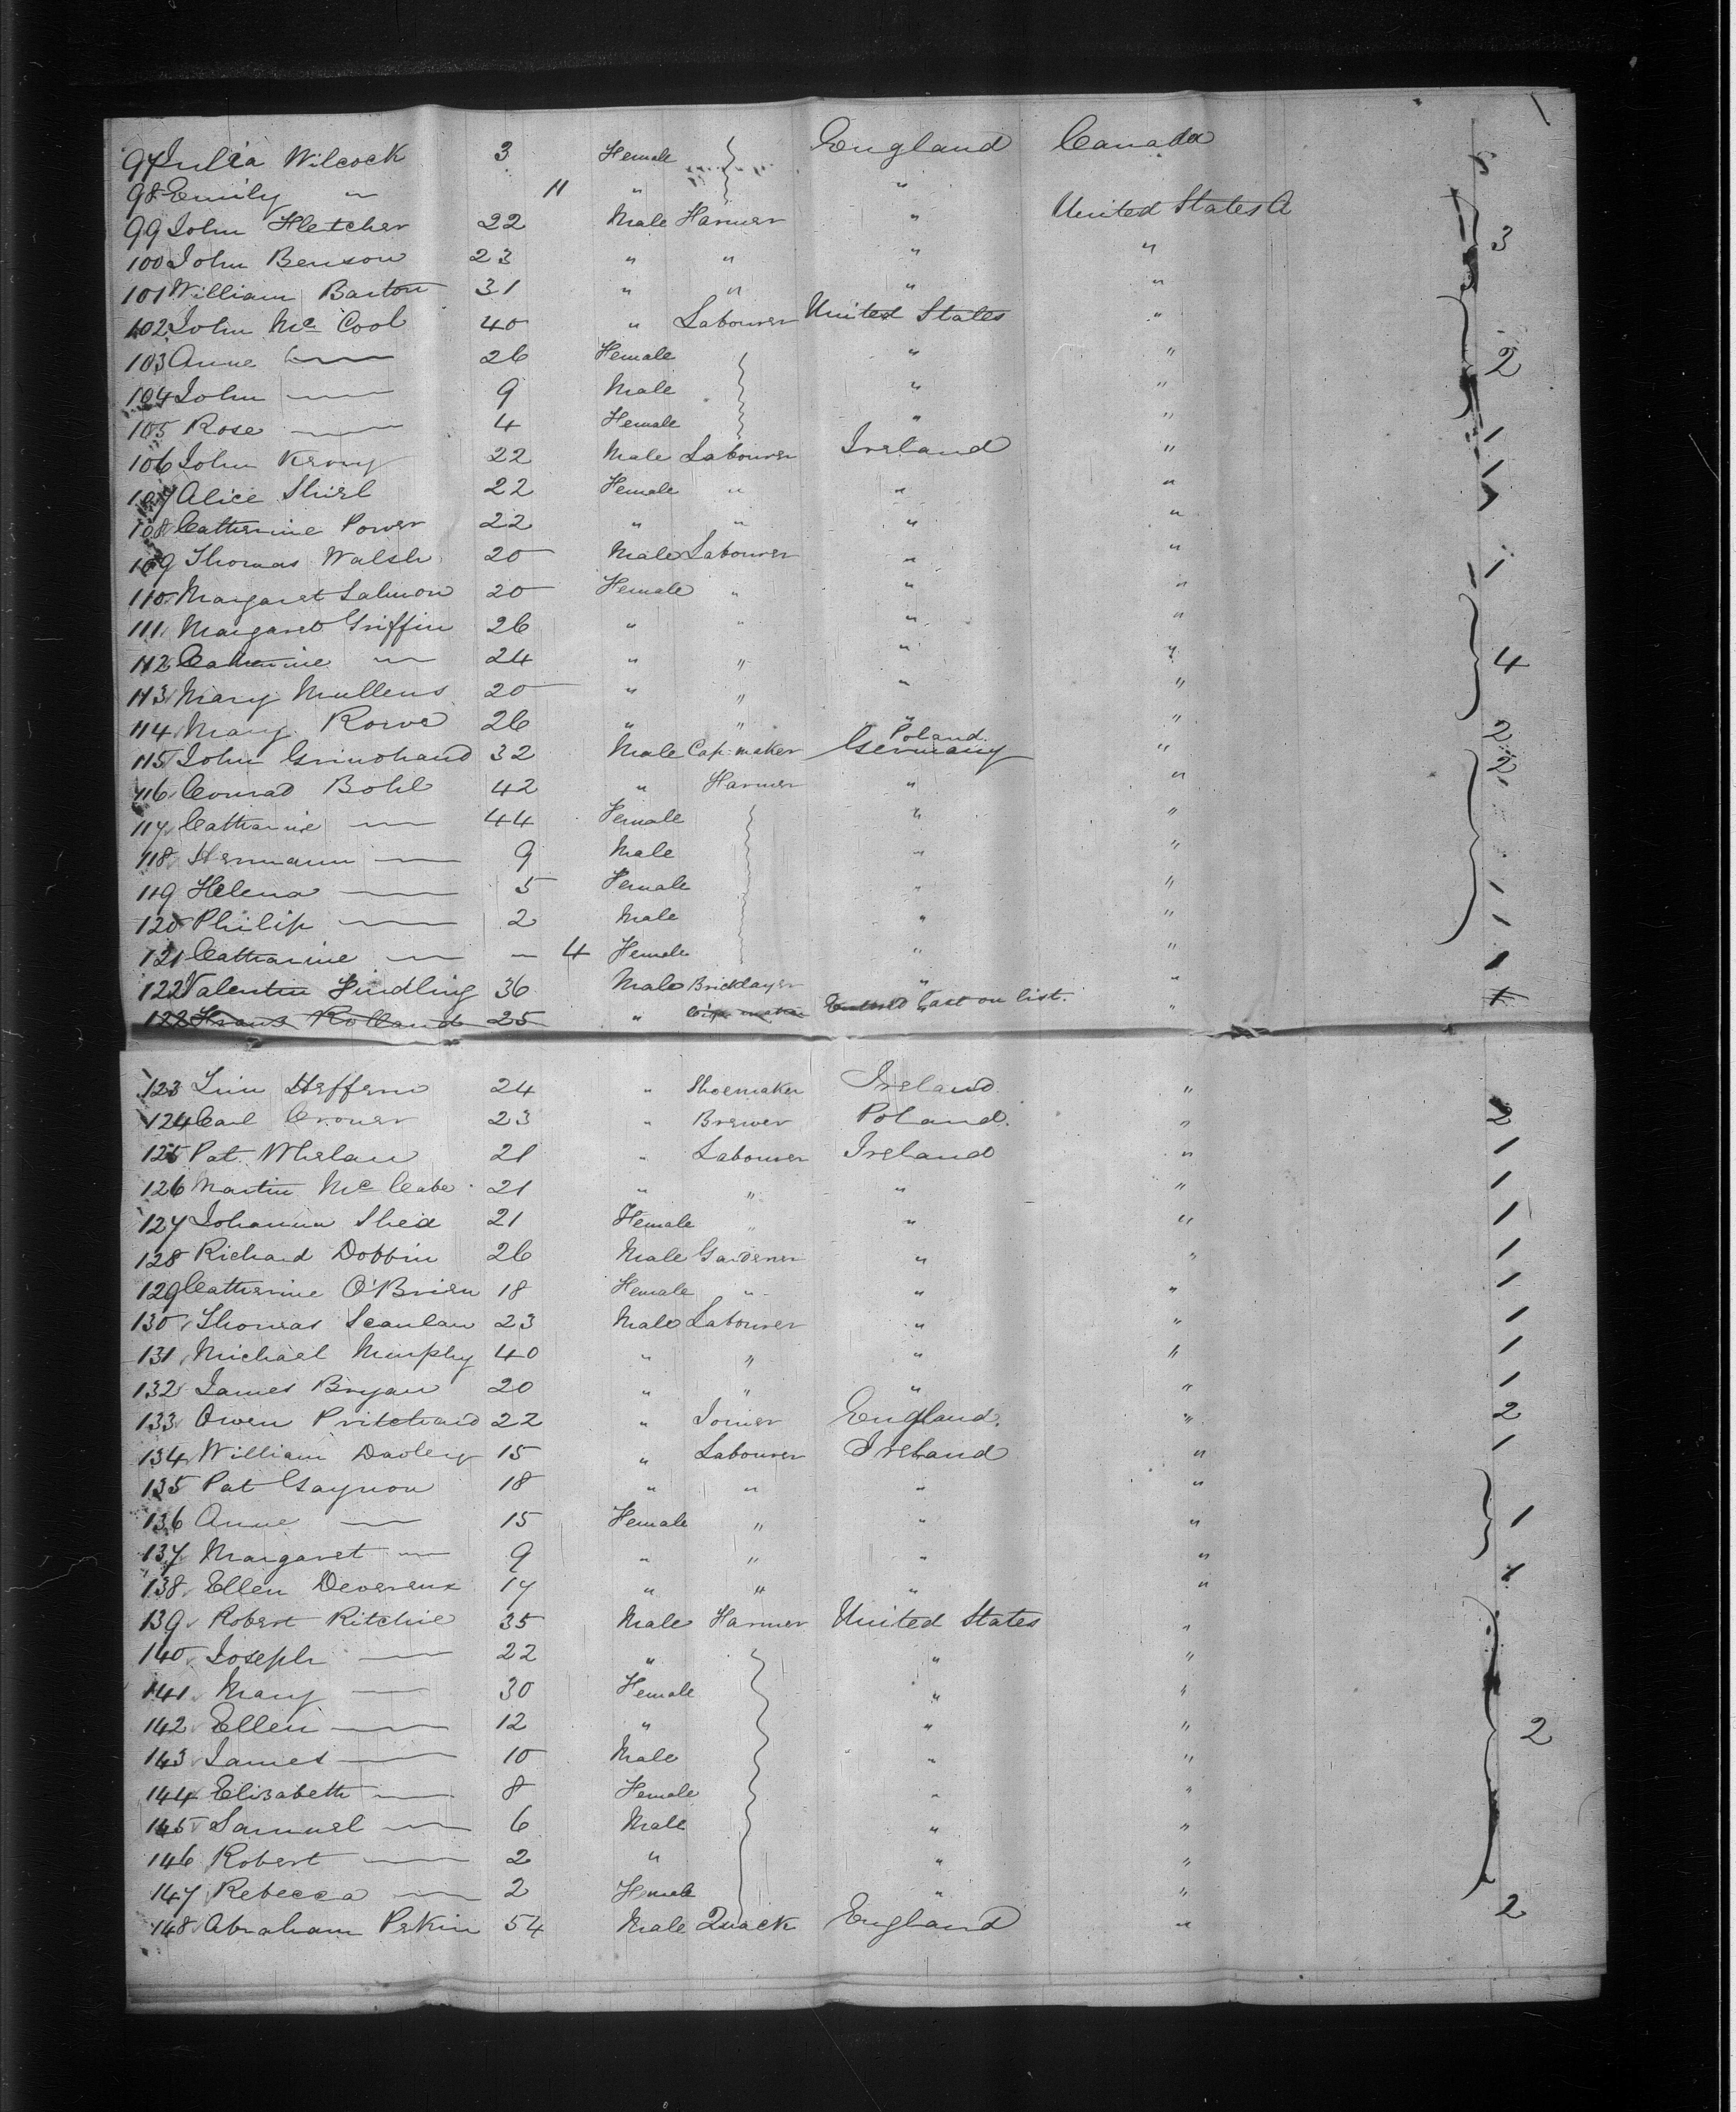 97 Julia Wilcock 3 Female England Canada 5
98 Emily " 11 " "
99 John Fletcher 22 Male Farmer " United States A 3
100 John Benson 23 " " " "
101 William Barton 31 " " " "
102 John Mc Cool 40 " Labourer United States "
103 Anne — 26 Female " " 2
104 John — 9 Male " "
105 Rose — 4 Female " " 1
106 John 22 Male Labourer Ireland " 1
107 Alice 22 Female " " "
108 Catherine Power 22 " " " "
109 Thomas Walsh 20 Male Labourer " " 1
110 Margaret Salmon 20 Female " " "
111 Margaret Griffin 26 " " " "
112 Catherine — 24 " " " " 4
113 Mary Mullens 20 " " " "
114 Mary Rowe 26 " " " " 2
115 John 32 Male Cap-maker Germany Poland " 2
116 Conrad Bohl 42 " Farmer " "
117 Catharine — 44 Female " "
118 Hermann — 9 Male " "
119 Helena — 5 Female " " 1
120 Philip — 2 Male " " 1
121 Catharine — — 4 Female " " 1
122 Valentin Findling 36 Male Bricklayer " " 1
122 Franz Rolland 25 " Entered last on list. "
123 Heffern 24 " Shoemaker Ireland "
124 Carl Croner 23 " Brewer Poland. " 2
125 Pat Whelan 21 " Labourer Ireland " 1
126 Martin Mc Cabe 21 " " " " 1
127 Johanna Shea 21 Female " " " 1
128 Richard Dobbin 26 Male Gardener " " 1
129 Catherine O'Brien 18 Female " " " 1
130 Thomas Scanlan 23 Male Labourer " " 1
131 Michael Murphy 40 " " " " 1
132 James Bryan 20 " " " " 1
133 Owen Pritchard 22 " Joiner England. " 2
134 William 15 " Labourer Ireland " 1
135 Pat Gaynon 18 " " " "
136 Anne — 15 Female " " " 1
137 Margaret — 9 " " " "
138 Ellen Devereux 17 " " " " 1
139 Robert Ritchie 35 Male Farmer United States "
140 Joseph — 22 " " "
141 Mary — 30 Female " "
142 Ellen — 12 " " " 2
143 James — 10 Male " "
144 Elizabeth — 8 Female " "
145 Samuel — 6 Male " "
146 Robert — 2 " " "
147 Rebecca — 2 Female " "
148 Abraham Perkin 54 Male Quack England " 2